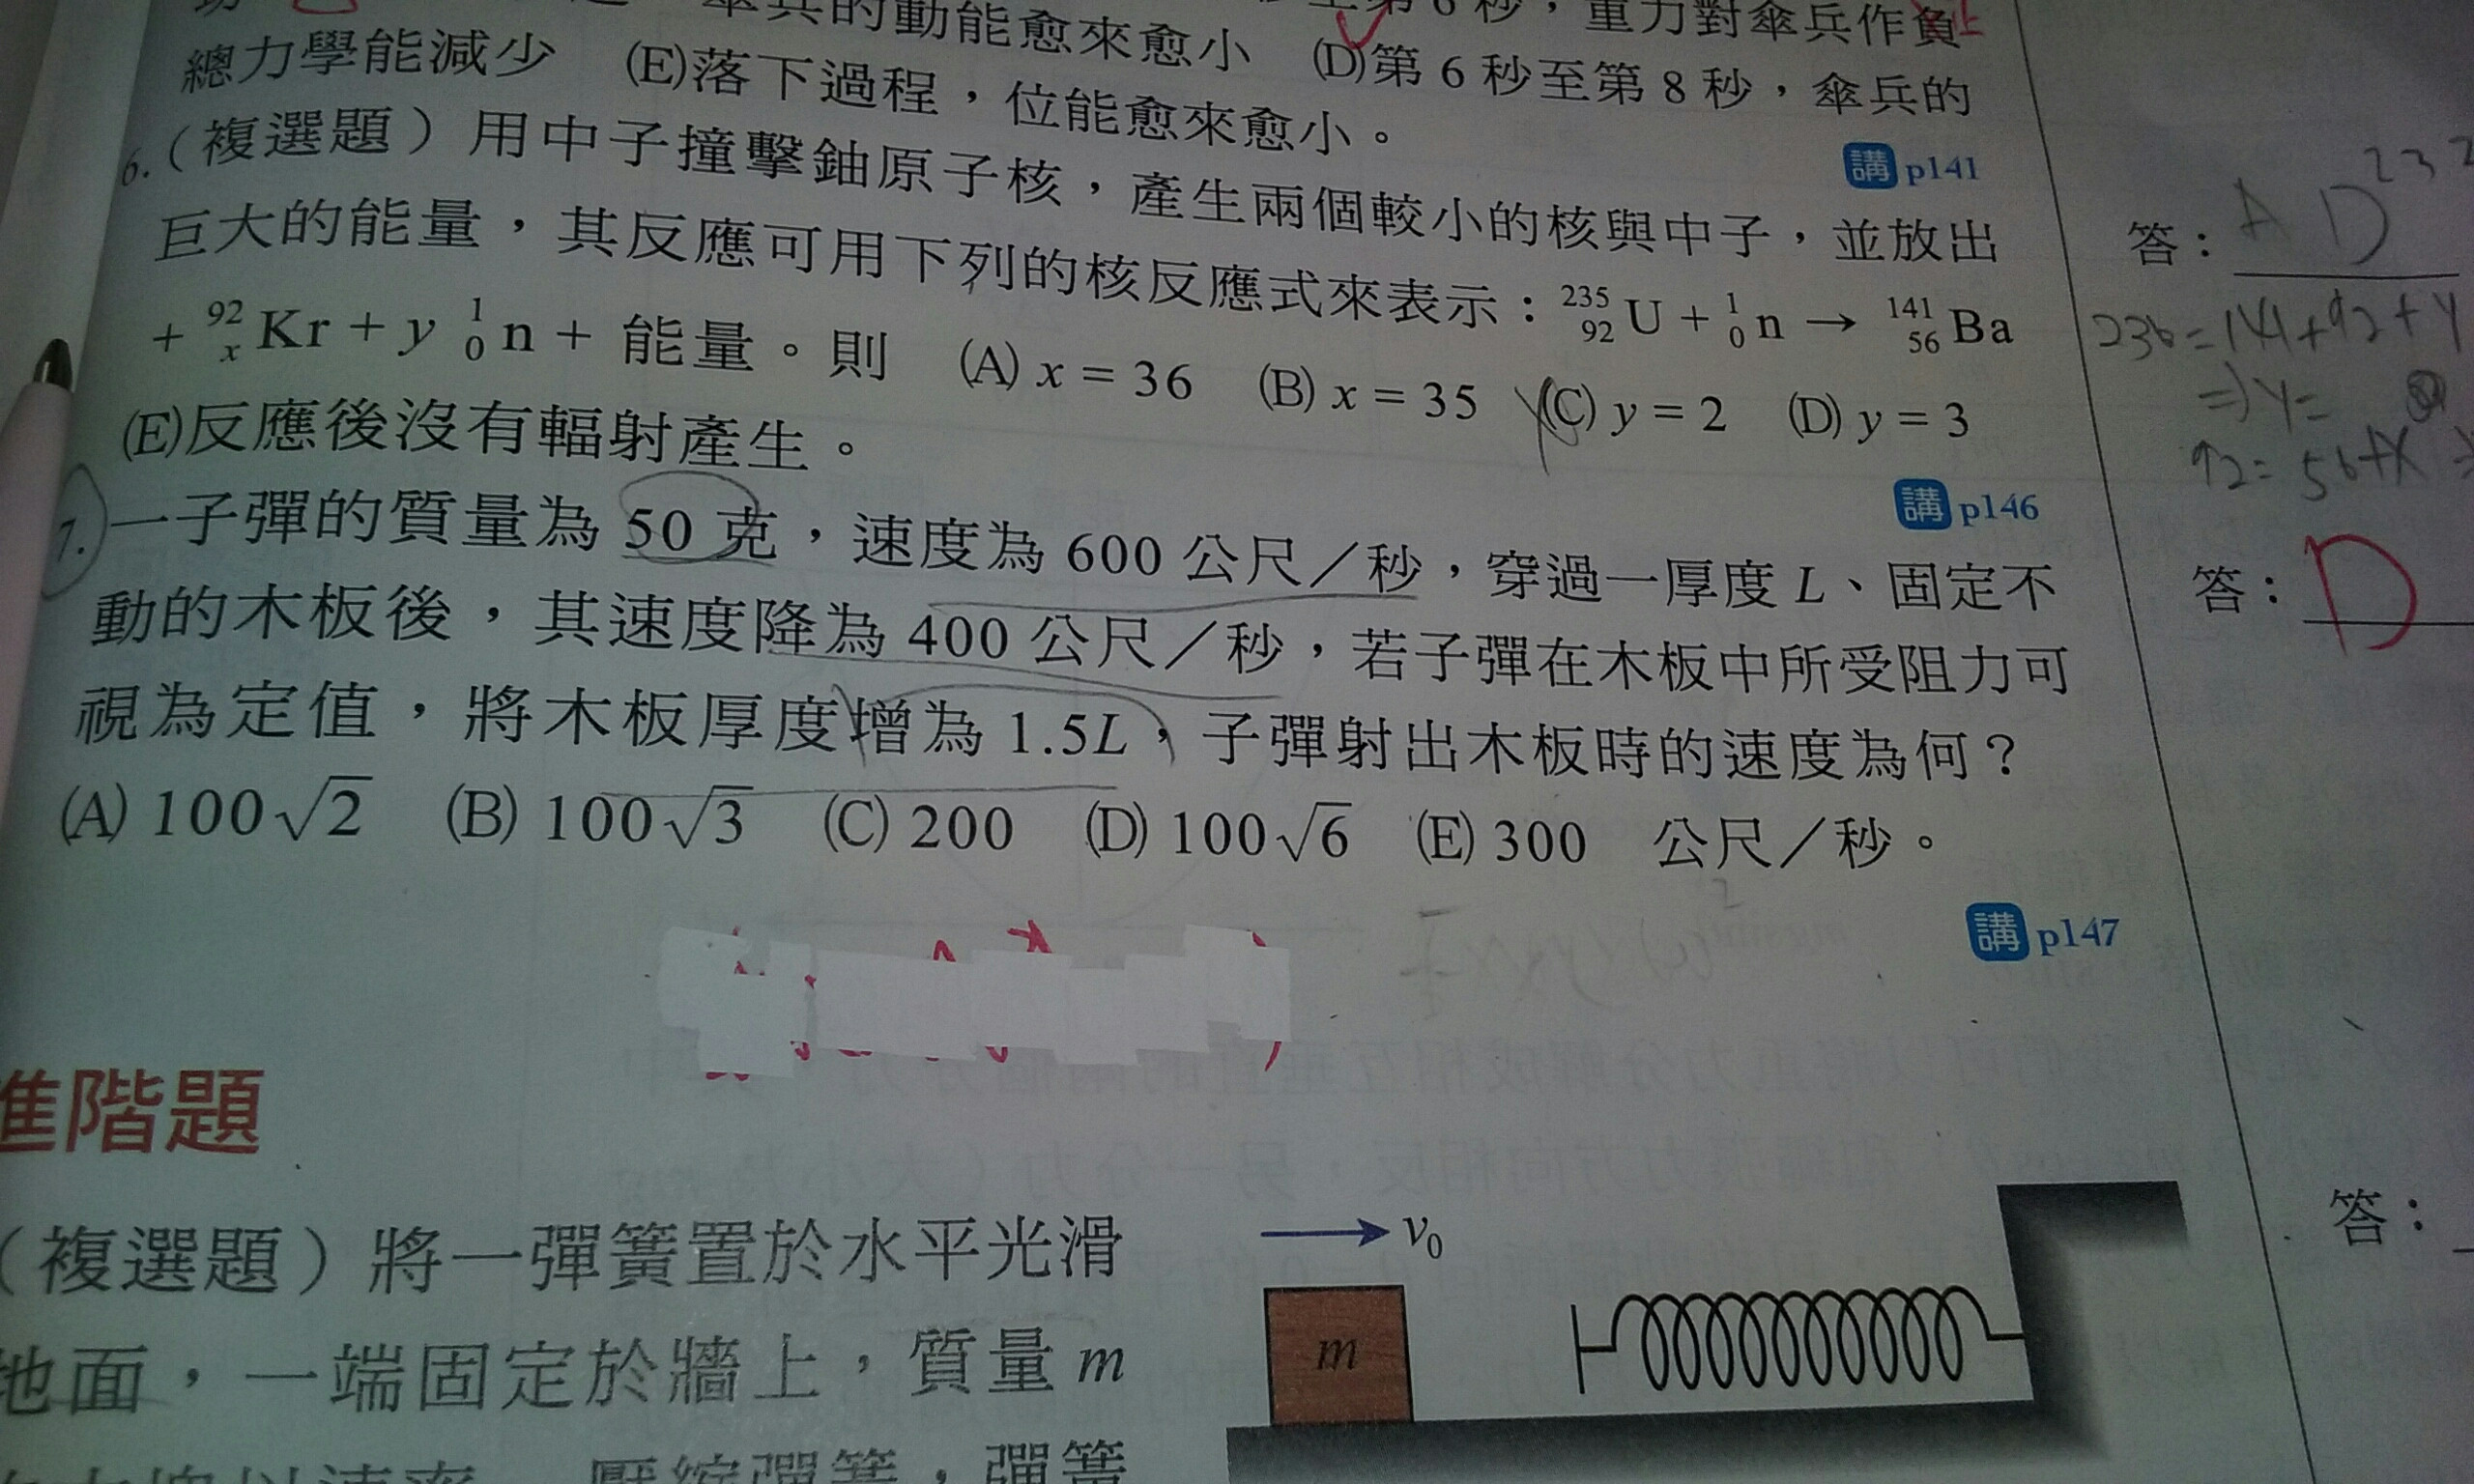 傘兵的動能愈來愈小
第6秒，重力對傘兵作負
總力學能減少 (E)落下過程，位能愈來愈小。 (D)第6秒至第8秒，傘兵的
講 p141
6.（複選題）用中子撞擊鈾原子核，產生兩個較小的核與中子，並放出
巨大的能量，其反應可用下列的核反應式來表示：²³⁵₉₂U + ¹₀n → ¹⁴¹₅₆Ba
+ ⁹²ₓKr + y ¹₀n + 能量。則 (A) x = 36 (B) x = 35 (C) y = 2 (D) y = 3
(E)反應後沒有輻射產生。
講 p146
答： A D
236 = 141 + 92 + y
⇒ y =
92 = 56 + x
7. 一子彈的質量為 50 克，速度為 600 公尺／秒，穿過一厚度 L、固定不
動的木板後，其速度降為 400 公尺／秒，若子彈在木板中所受阻力可
視為定值，將木板厚度增為 1.5L，子彈射出木板時的速度為何？
(A) 100√2 (B) 100√3 (C) 200 (D) 100√6 (E) 300 公尺／秒。
講 p147
答： D
進階題
（複選題）將一彈簧置於水平光滑
地面，一端固定於牆上，質量 m
壓縮彈簧，彈簧
v₀
m
答：